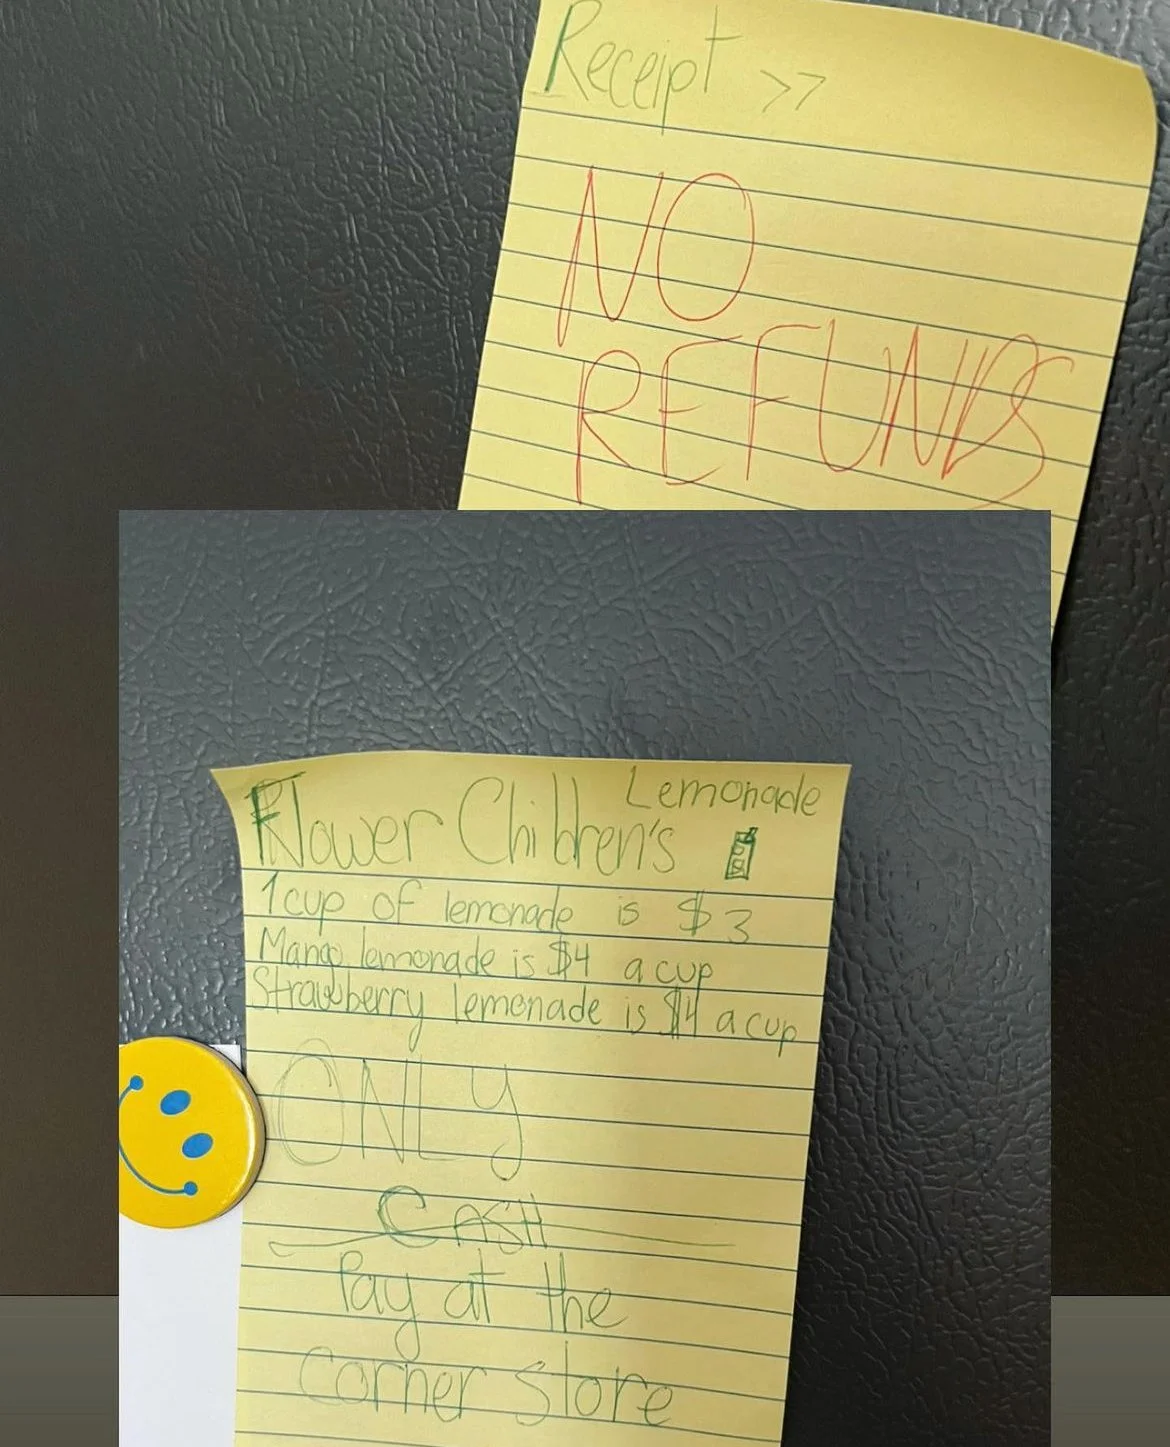 Receipt >>
NO
REFUNDS
Lemonade
Flower Children's
1 cup of lemonade is $3
Mango lemonade is $4 a cup
Strawberry lemonade is $4 a cup
ONLY
CASH
Pay at the
Corner Store